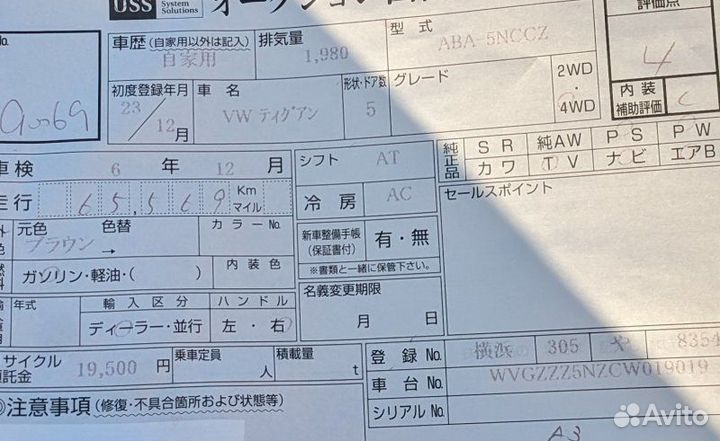 USS System Solutions
評価点
4
内装
補助評価 C
No.
車歴(自家用以外は記入)
自家用
排気量
1,980
型式
ABA-5NCCZ
初度登録年月
23/12月
車名
VW ティグアン
形状・ドア数
5
グレード
2WD
・
4WD
車検 6年 12月
走行 65,569 Km マイル
シフト AT
冷房 AC
純正品
SR 純AW PS PW
カワ TV ナビ エアB
セールスポイント
元色 色替 カラーNo.
ブラウン →
新車整備手帳
(保証書付)
有・無
※書類と一緒に保管下さい。
ガソリン・軽油・( )
内装色
年式
輸入区分
ハンドル
ディーラー・並行
左・右
名義変更期限
月 日
リサイクル
預託金
19,500円
乗車定員
人
積載量
t
登録No. 横浜 305 や 8354
車台No. WVGZZZ5NZCW019019
シリアルNo.
◎注意事項(修復・不具合箇所および状態等)
A3
Avito